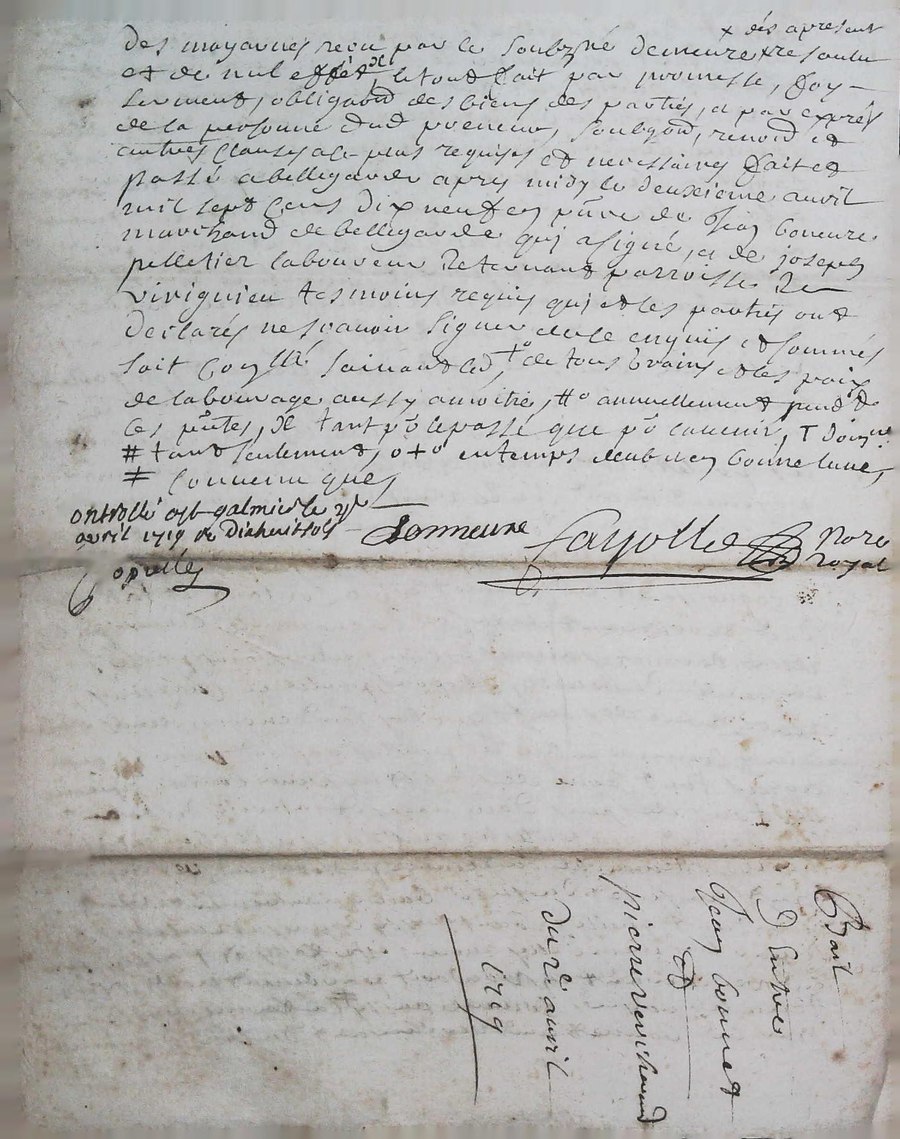 x dés apresent
des moyannes receu par le Soubzné demeure x resoulu
et de nul effet, le tout fait par promesse, foy
serment, obligaon des biens des parties, et par exprés
de la personne dud preneur, renon et
autres clauses a ce plus requises et necessaires fait et
passé a bellegarde apres midy le deuxieme avril
mil sept cens dix neuf en pnce de Jean
marchand de bellegarde qui a signé, et de joseph
pelletier laboureur parroisse de
virignieu tesmoins requis qui et les parties ont
declarés ne scavoir signer de ce enquis et sommés
soit +o de tous grains et les
de labourage aussy a moitié, #o annuellement pendt
ces pntes, tant po le passé que po lavenir, T
# tant seulement, o+o en temps deub et en bonne lune,
≠ convenu que,
ontrollé a st galmier le
avril 1719 Fayolle Nore
royal
Bail
Entre
Jean bonnet
et
pierre
du 2e avril
1719